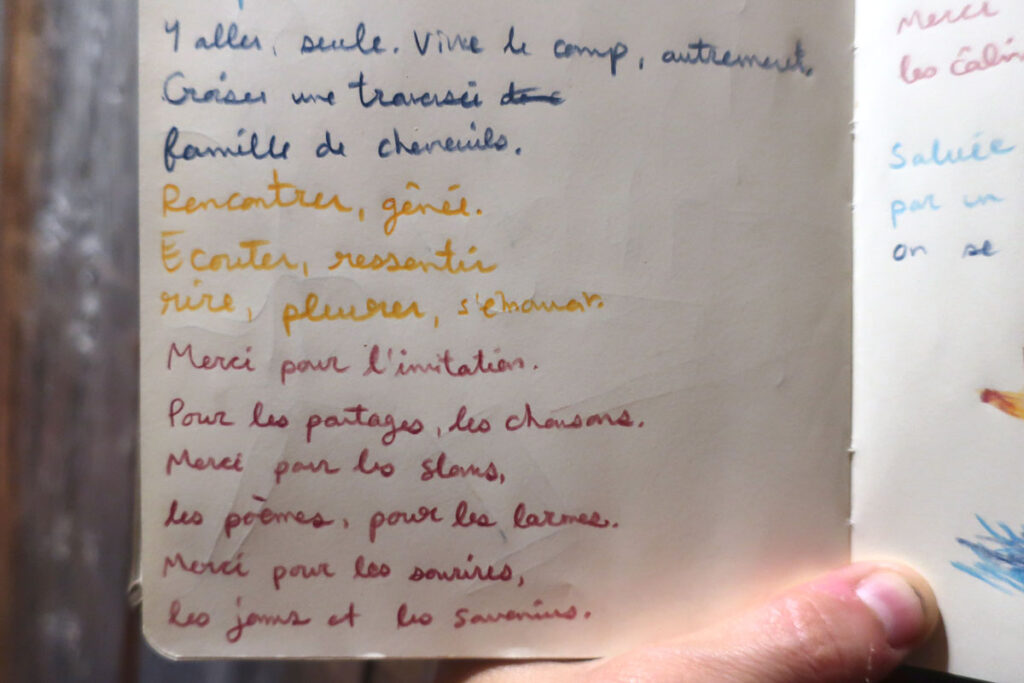 Y aller, seule. Vivre le camp, autrement.
Croiser une traversée
famille de chevreuils.
Rencontrer, gênée.
Ecouter, ressentir
rire, pleurer,
Merci pour l'invitation.
Pour les partages, les chansons.
Merci pour les slams,
les poèmes, pour les larmes.
Merci pour les sourires,
les jams et les
Merci
les câlin
Saluée
par un
on se